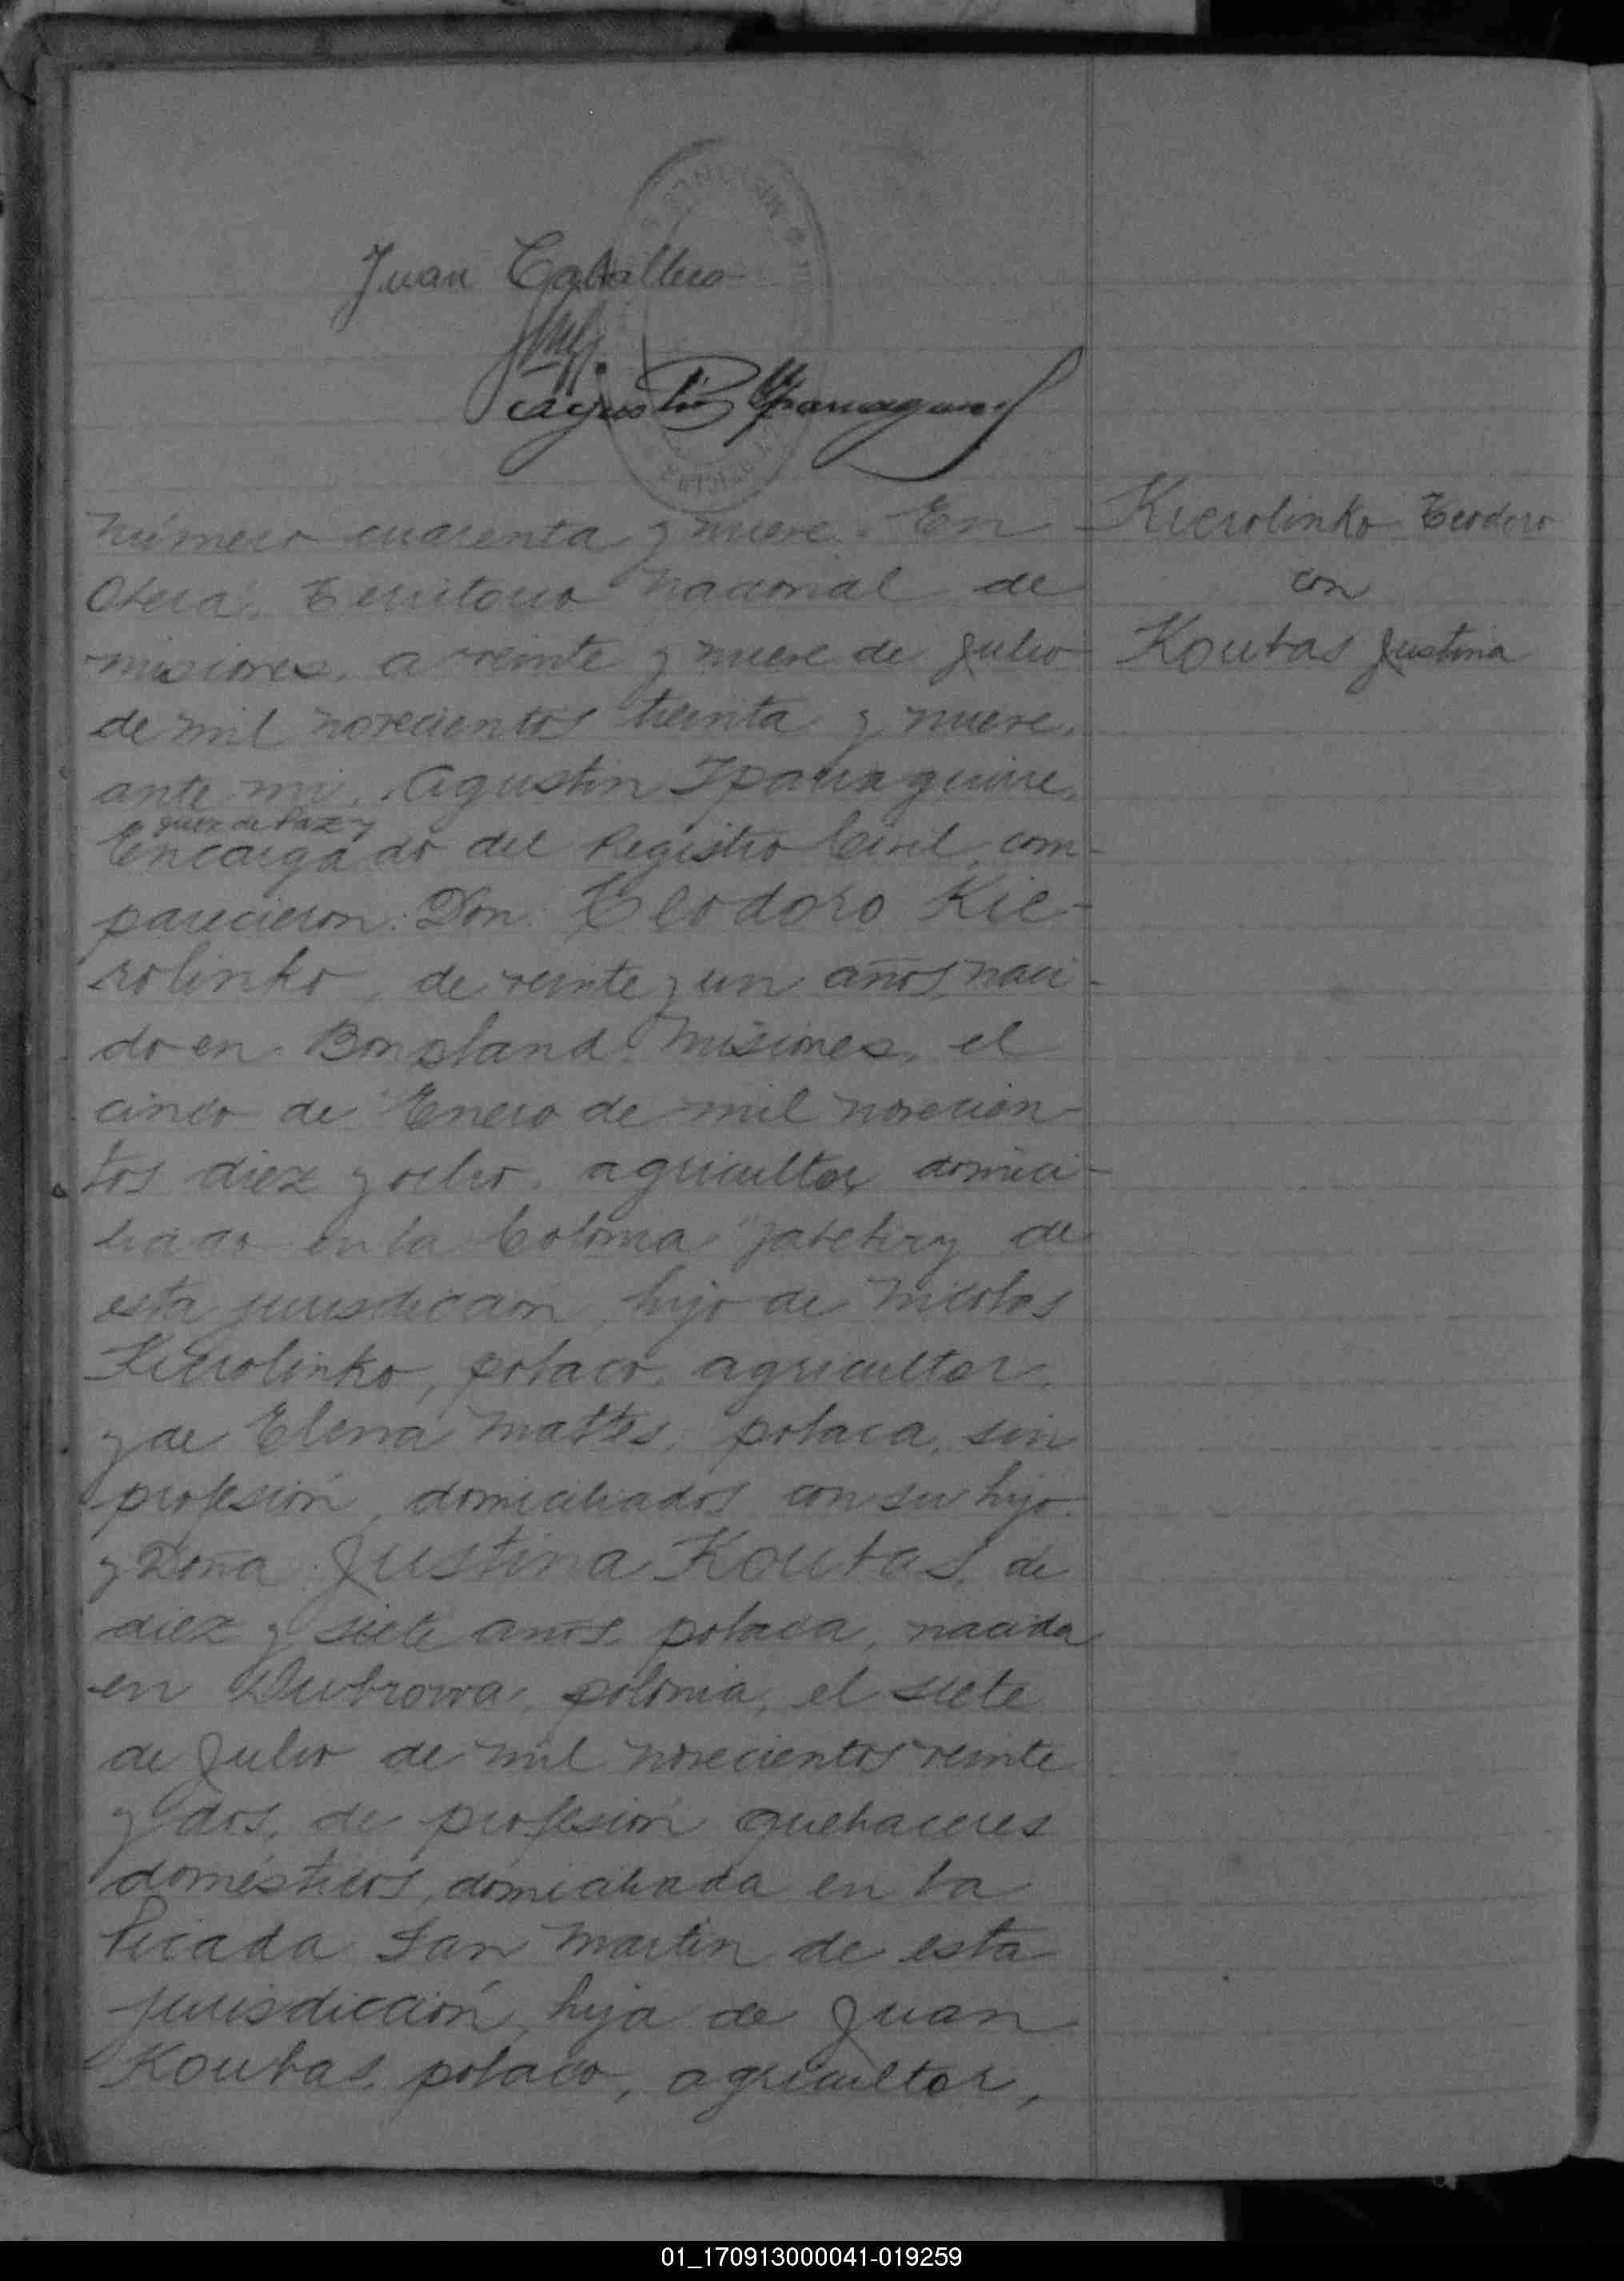 Juan Caballero
Agustin Iparraguirre
Número cuarenta y nueve. En
Oberá, Territorio Nacional de
Misiones, a veinte y nueve de Julio
de mil novecientos treinta y nueve,
ante mi, Agustin Iparraguirre,
Juez de Paz y
Encargado del Registro Civil, com-
parecieron: Don Teodoro Kie-
rolinko, de veinte y un años, naci-
do en Bonpland, Misiones, el
cinco de Enero de mil novecien-
tos diez y ocho, agricultor, domici-
liado en la Colonia Yabebiry de
esta jurisdicción, hijo de Nicolas
Kierolinko, polaco, agricultor,
y de Elena Mattes, polaca, sin
profesión, domiciliados con su hijo.
y Doña Justina Koubas, de
diez y siete años, polaca, nacida
en Dubrowa, polonia, el siete
de Julio de mil novecientos veinte
y dos, de profesión quehaceres
domésticos, domiciliada en la
Picada San Martin de esta
jurisdicción, hija de Juan
Koubas, polaco, agricultor,
Kierolinko Teodoro
con
Koubas Justina
01_170913000041-019259